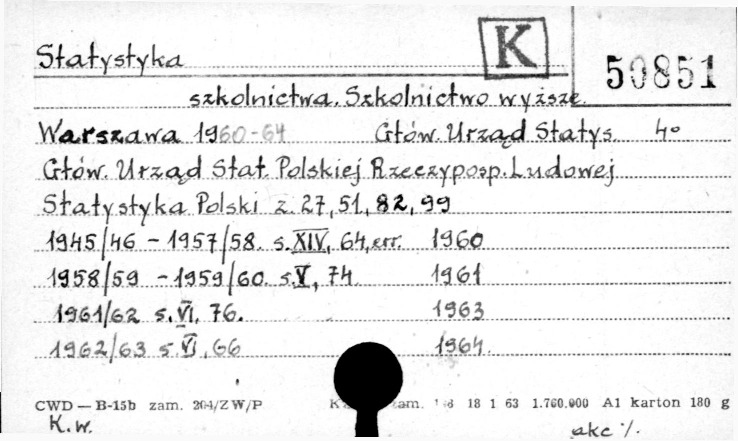 Statystyka K 50851
szkolnictwa. Szkolnictwo wyższe.
Warszawa 1960-64 Głów. Urząd Statys. 4°
Głów. Urząd Stat. Polskiej Rzeczyposp. Ludowej
Statystyka Polski z. 27, 51, 82, 99
1945/46 - 1957/58. s. XIV, 64, err. 1960
1958/59 - 1959/60. s. V, 74. 1961
1961/62 s. VI, 76. 1963
1962/63 s. VI, 66 1964
CWD — B-15b zam. 204/ZW/P 18 1 63 1.760.000 A1 karton 180 g
K.w. akc %.